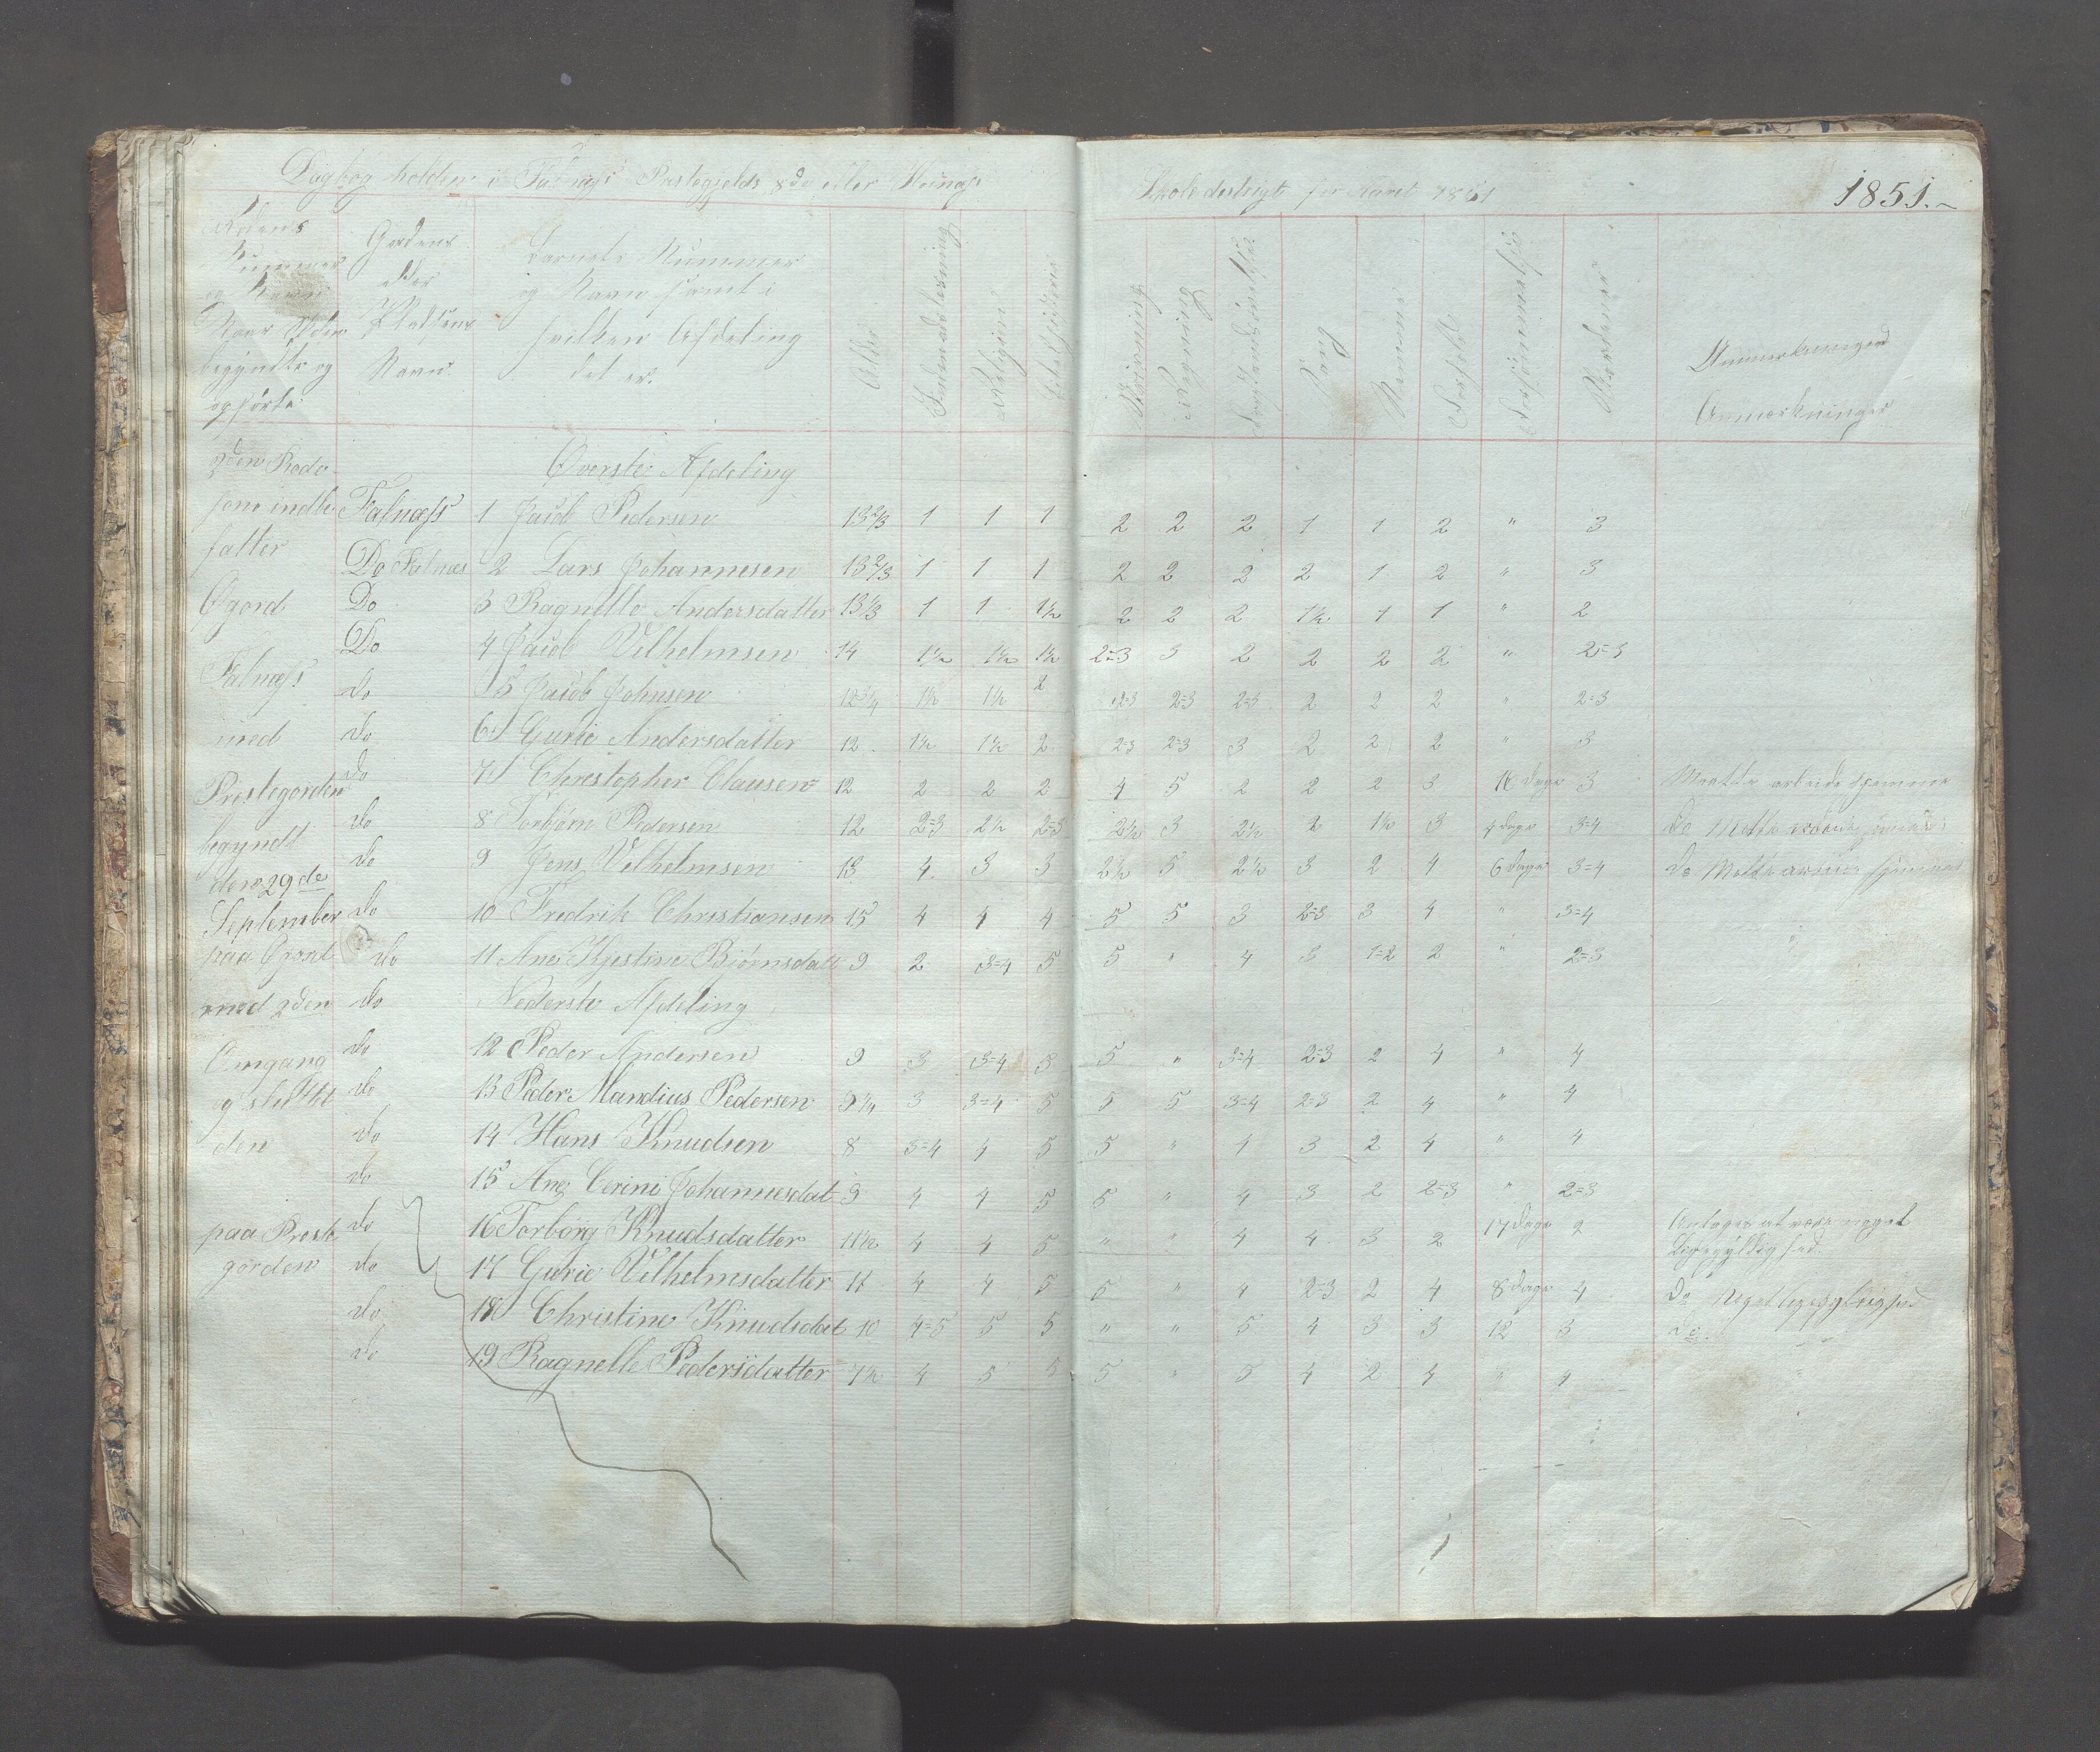 Dagbog holden i Falnæss Præstegjelds 8de eller
Skoledestrigt for Aaret 1851
1851.-
Rodens
Nummer
og Navn
Naar Skolen
begyndte og
ophørte
Gordens
eller
Pladsens
Navn
Barnets Nummer
og Navn samt i
hvilken Afdeling
det er.
Alder
Indenadslæsning
Religion
Bibelhistorie
Skrivning
Regning
Forstandsøvelse
Sang
Nemme
Forhold
Forsømmelse
Anmærkninger
Anmærkninger
2den Rode
Øverste Afdeling
som indbe Falnæss 1 Jacob Pedersen 13 2/3 1 1 1 2 2 2 1 1 2 " 3
fatter
Do Falnæs 2 Lars Johannesen 13 2/3 1 1 1 2 2 2 2 1 2 " 3
Øgord Do 3 Ragnille Andersdatter 13 1/3 1 1 1½ 2 2 2 1½ 1 1 " 2
Do 4 Jacob Vilhelmsen 14 1½ 1½ 1½ 2=3 3 2 2 2 2 " 2=3
Falnæss do 5 Jacob Johnsen 12 3/4 1½ 1½ 2 2=3 2=3 2=3 2 2 2 " 2=3
med do 6 Gurie Andersdatter 12 1½ 1½ 2 2=3 2=3 3 2 2 2 " 3
Prestegorden do 7 Christopher Clausen 12 2 2 2 4 5 2 2 2 3 16 Dage 3 Maatte arbeide hjemme
begyndt do 8 Torbjørn Pedersen 12 2=3 2½ 2=3 2½ 3 2½ 2 1½ 3 4 Dage 3=4 do Motte arbeide hjemme
den 29de do 9 Jens Vilhelmsen 13 4 3 3 2½ 5 2½ 3 2 4 6 Dage 3=4 do Motte arbeide hjemme
September do 10 Fredrik Christiansen 15 4 4 4 5 5 3 2=3 3 4 " 3=4
paa Øgord do 11 Ane Kjestine Bjørnsdatt 9 2 3=4 5 5 " 4 3 1=2 2 " 2=3
med 2den do Nederste Afdeling
Omgang do 12 Peder Andersen 9 3 3=4 5 5 " 3=4 2=3 2 4 " 4
og sluttet do 13 Peder Mandius Pedersen 9 1/4 3 3=4 5 5 5 3=4 2=3 2 4 " 4
den do 14 Hans Knudsen 8 3=4 4 5 5 " 4 3 2 4 " 4
do 15 Ane Cerine Johannesdat 9 4 4 5 5 " 4 3 2 2=3 " 2=3
paa Preste do 16 Torborg Knudsdatter 11½ 4 4 5 " " 4 4 3 2 17 Dage 2 Antages at være noget
Ligegyldighed.
gorden do 17 Gurie Vilhelmsdatter 11 4 4 5 5 " 4 2=3 2 4 8 Dage 4 Do Noget
do 18 Christine Knudsdat 10 4=5 5 5 " " 5 4 3 3 12 3 do.
do 19 Ragnelle Pedersdatter 7½ 4 5 5 5 " 5 4 2 4 " 4